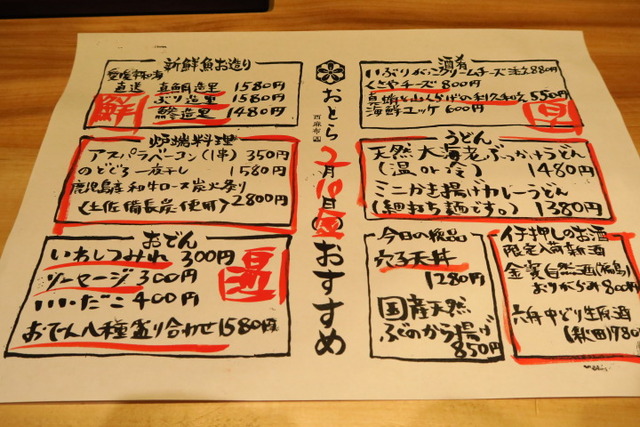 新鮮魚お造り
直送 真鯛造里 1580円
ぶり造里 1580円
鯵造里 1480円
鮮
炉端料理
アスパラベーコン(1串) 350円
のどぐろ一夜干し 1580円
鹿児島産和牛ロース炭火炙り
(土佐備長炭使用) 2800円
おでん
いわしつみれ 300円
ソーセージ 300円
いいだこ 400円
おでん八種盛り合わせ 1580円
おとら
西麻布
2月10日金
おすすめ
酒肴
いぶりがっこクリームチーズ 880円
くさやチーズ 800円
550円
海鮮ユッケ 600円
うどん
天然大海老ぶっかけうどん
(温or冷) 1480円
ミニかき揚げカレーうどん
(細打ち麺です。) 1380円
今日の逸品
穴子天丼
1280円
国産天然
ふぐのから揚げ
850円
イチ押しのお酒
限定入荷新酒
金寶自然酒(福島)
おりがらみ 800円
六舟中どり生原酒
(秋田)